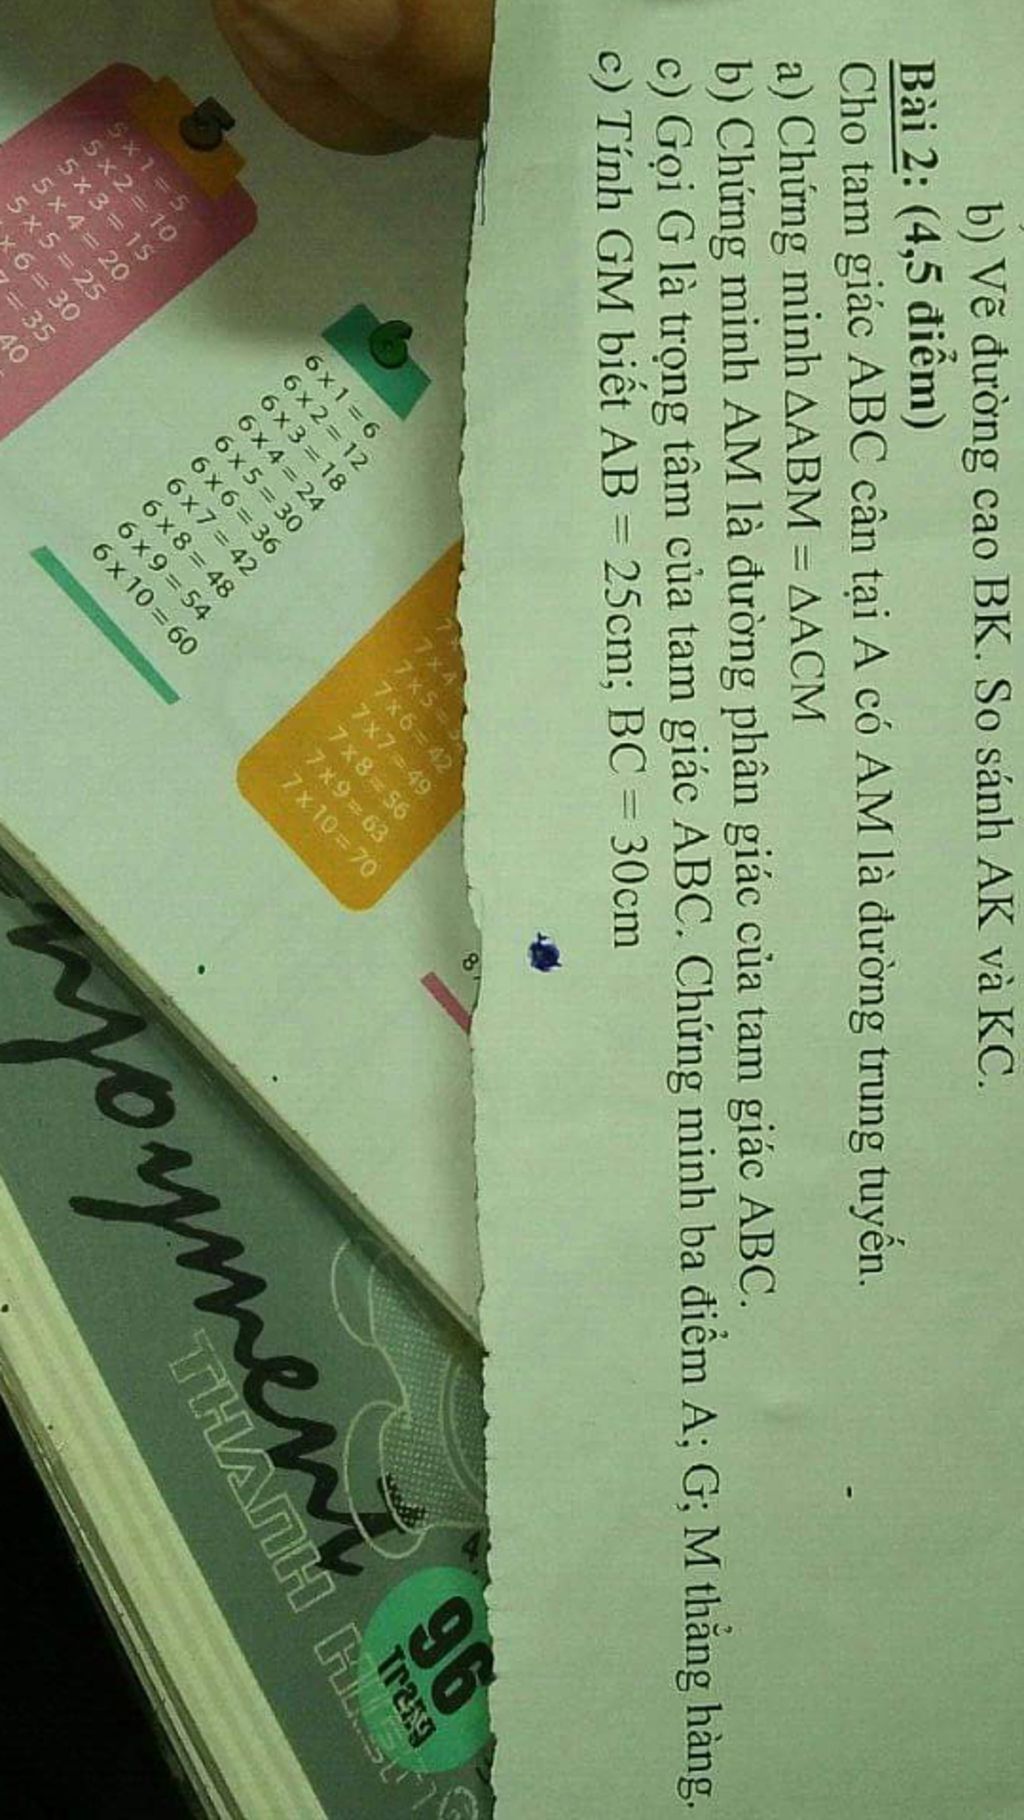 b) Vẽ đường cao BK. So sánh AK và KC.
Bài 2: (4,5 điểm)
Cho tam giác ABC cân tại A có AM là đường trung tuyến.
a) Chứng minh ΔABM = ΔACM
b) Chứng minh AM là đường phân giác của tam giác ABC.
c) Gọi G là trọng tâm của tam giác ABC. Chứng minh ba điểm A; G; M thẳng hàng.
c) Tính GM biết AB = 25cm; BC = 30cm
5
5 × 1 = 5
5 × 2 = 10
5 × 3 = 15
5 × 4 = 20
5 × 5 = 25
× 6 = 30
7 = 35
40
6
6 × 1 = 6
6 × 2 = 12
6 × 3 = 18
6 × 4 = 24
6 × 5 = 30
6 × 6 = 36
6 × 7 = 42
6 × 8 = 48
6 × 9 = 54
6 × 10 = 60
7 × 5 = 3
7 × 6 = 42
7 × 7 = 49
7 × 8 = 56
7 × 9 = 63
7 × 10 = 70
8
njoyment
THANH
96
Trang